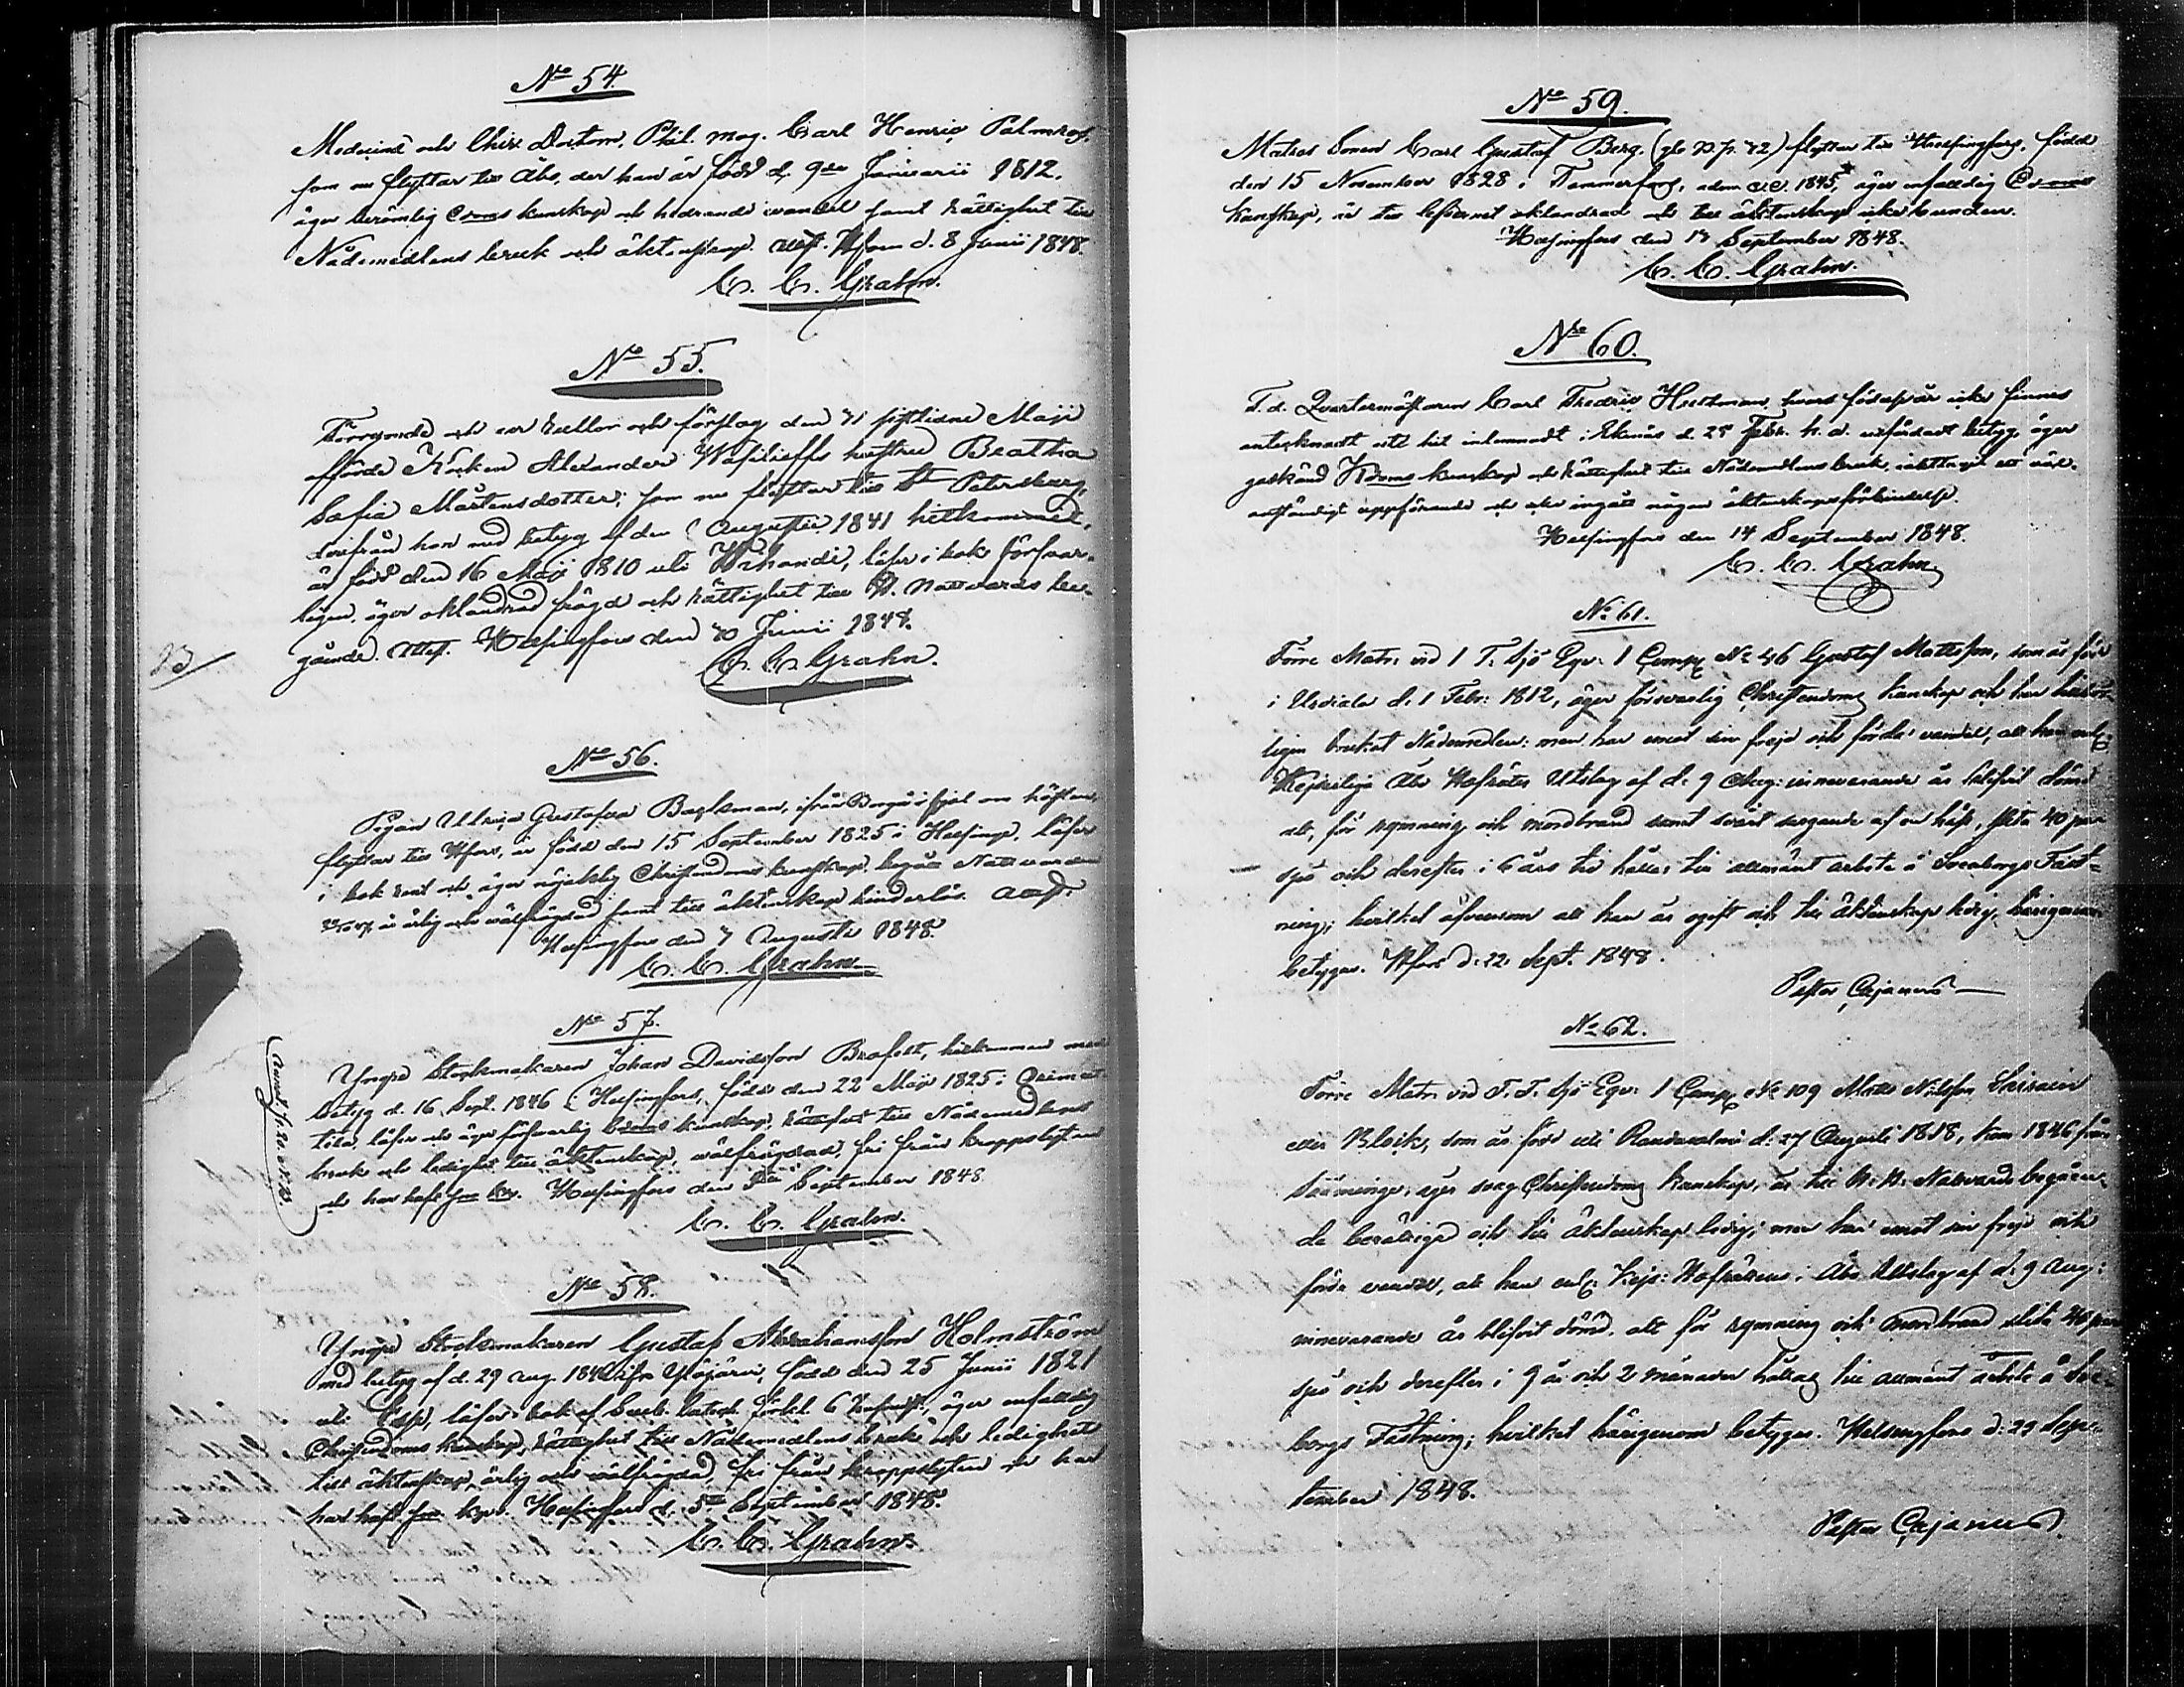 No 54.
Medicinæ och Chir. Doctorn, Phil. mag. Carl Henric Palmros,
som nu flyttar till Åbo, der han är född d. 9de Januarii 1812,
äger berömlig Cdoms kunskap och hedrande wandel samt rättighet till
Nådemedlens bruk och äktenskap. Attest. Hfors d. 8 Junii 1848.
C. C. Grahn.
No 55.
sistlidne Maji
Kocken Alexander Wasilieffs hustru Beatha
Sofia Mårtensdotter, som nu flyttar till St Petersburg,
hvarifrån hon med betyg af den Augusti 1841 hitkommit,
är född den 16 Maji 1810 uti läser i bok försvar-
ligen, äger oklandrad frägd och rättighet till H. Nattvards be-
gående. Attest. Helsingfors den 20 Junii 1848.
C. C. Grahn.
23/
No 56.
Pigan Ulrica Gustafva Backman, ifrån Borgå i fjol om hösten,
flyttar till Hfors, är född den 15 September 1825 i Helsinge, läser
i bok rent och äger nöjaktig Christendoms kunskap, begått Nattvarden
är ärlig och wälfrägdad samt till äktenskap hinderlös. Attest.
Helsingfors den 7 Augusti 1848.
C. C. Grahn
No 57.
Yngre Stockmakaren Johan Davidsson Brofelt, hitkommen med
betyg d. 16 Sept. 1846 i Helsingfors, född den 22 Maji 1825 i Orimat-
tila, läser och äger försvarlig Cdoms kunskap, rättighet till Nådemedlens
bruk och ledighet till äktenskap, wälfrägdad, fri från kroppslyten
och har haft kpr. Helsingfors den September 1848
C. C. Grahn.
No 58.
Yngre Stockmakaren Gustaf Abrahamsson Holmström
med betyg af d. 29 Aug. 184 ifr. Ylöjärvi, född den 25 Junii 1821
uti läser i bok af Sveb. Catech. förkl. 6 äger enfaldig
Christendoms kunskap, rättighet till Nådemedlens bruk och ledighet
till äktenskap, ärlig och wälfrägdad, fri från kroppslyten och har
haft kpr. Helsingfors d. 5te September 1848.
C. C. Grahn.
No 59.
Matros Sonen Carl Gustaf Berg, flyttar till Helsingfors, född
den 15 November 1828 i Tammerfors, adm. 1845, äger enfaldig Cdoms
kunskap, är till lefvernet oklandrad och till äktenskap icke bunden.
Helsingfors den September 1848.
C. C. Grahn.
No 60.
F. d. Qvartermästaren Carl Fredric Hultman, hvars födelseår icke finnes
antecknadt uti hit inlemnadt i Ekenäs d. 25 Febr. h. a. utfärdadt betyg, äger
godkänd Kdoms kunskap och rättighet till Nådemedlens bruk, iakttagit ett väl-
anständigt uppförande och icke ingått någon äktenskapsförbindelse.
Helsingfors den 14 September 1848.
C. C. Grahn.
No 61.
Förre Matr. vid 1 F. Sjö Eqv: 1 Comp. No 46 Gustaf Mattsson, som är född
i Urdiala d. 1 Febr: 1812, äger försvarlig Christendoms kunskap och har
ligen brukat Nådemedlen: men har emot sin frejd och förda vandel, att han enl.
Kejserliga Åbo Hofrätts Utslag af d: 9 Aug: innevarande år blifvit dömd
att, för rymning och mordbrand samt svårt sargande af en häst, slita 40 par
spö och derefter i 6 års tid hållas till allmänt arbete å Sveaborgs Fäst-
ning; hvilket äfvensom att han är ogift och till äktenskap ledig, härigenom
betygas. Hfors d: 22 Sept. 1848.
Petter Cajanus
No 62.
Förre Matr. vid F. F. Sjö Eqv: 1 Comp. No 109 Matts Nilsson
eller Block, som är född uti Randasalmi d: 27 Augusti 1818, kom 1846 från
Sääminge, äger svag Christendoms kunskap, är till H. H. Nattvards begåen-
de berättigad och till äktenskap ledig; men har emot sin frejd och
förda vandel, att han enl. Kejs: Hofrättens i Åbo Utslag af d: 9 Aug:
innevarande år blifvit dömd, att för rymning och mordbrand slita 40 par
spö och derefter i 9 år och 2 månader hållas till allmänt arbete å Svea-
borgs Fästning; hvilket härigenom betygas. Helsingfors d: 22 Sep-
tember 1848.
Petter Cajanus.